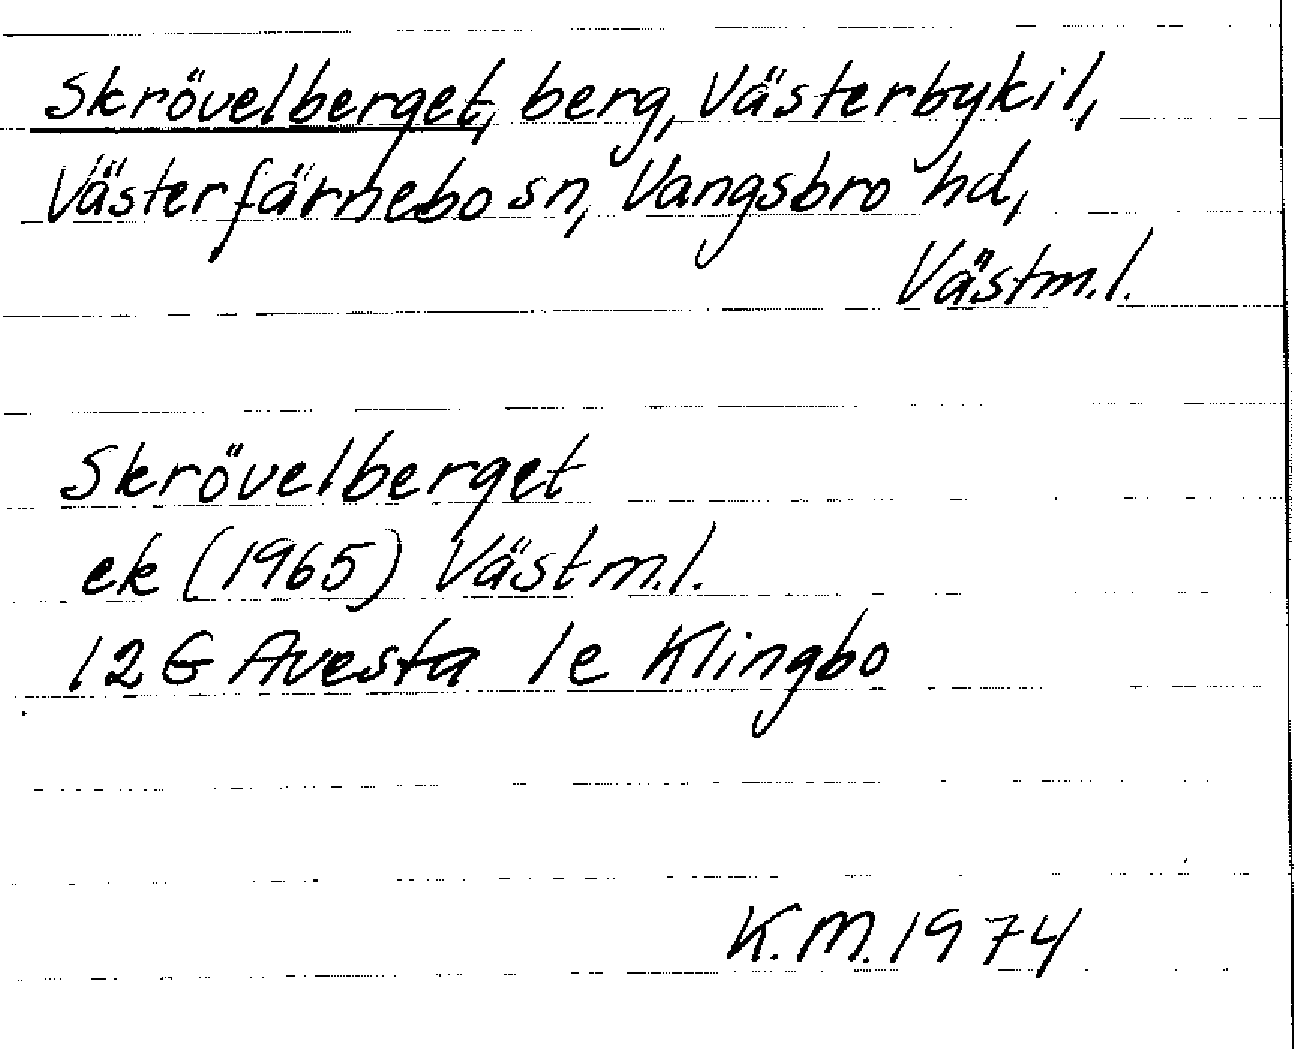 Skrövelberget, berg, Västerbykil,
Västerfärnebo sn, Vangsbro hd,
Västm.l.
Skrövelberget
ek (1965) Västm.l.
12G Avesta 1e Klingbo
K.M. 1974